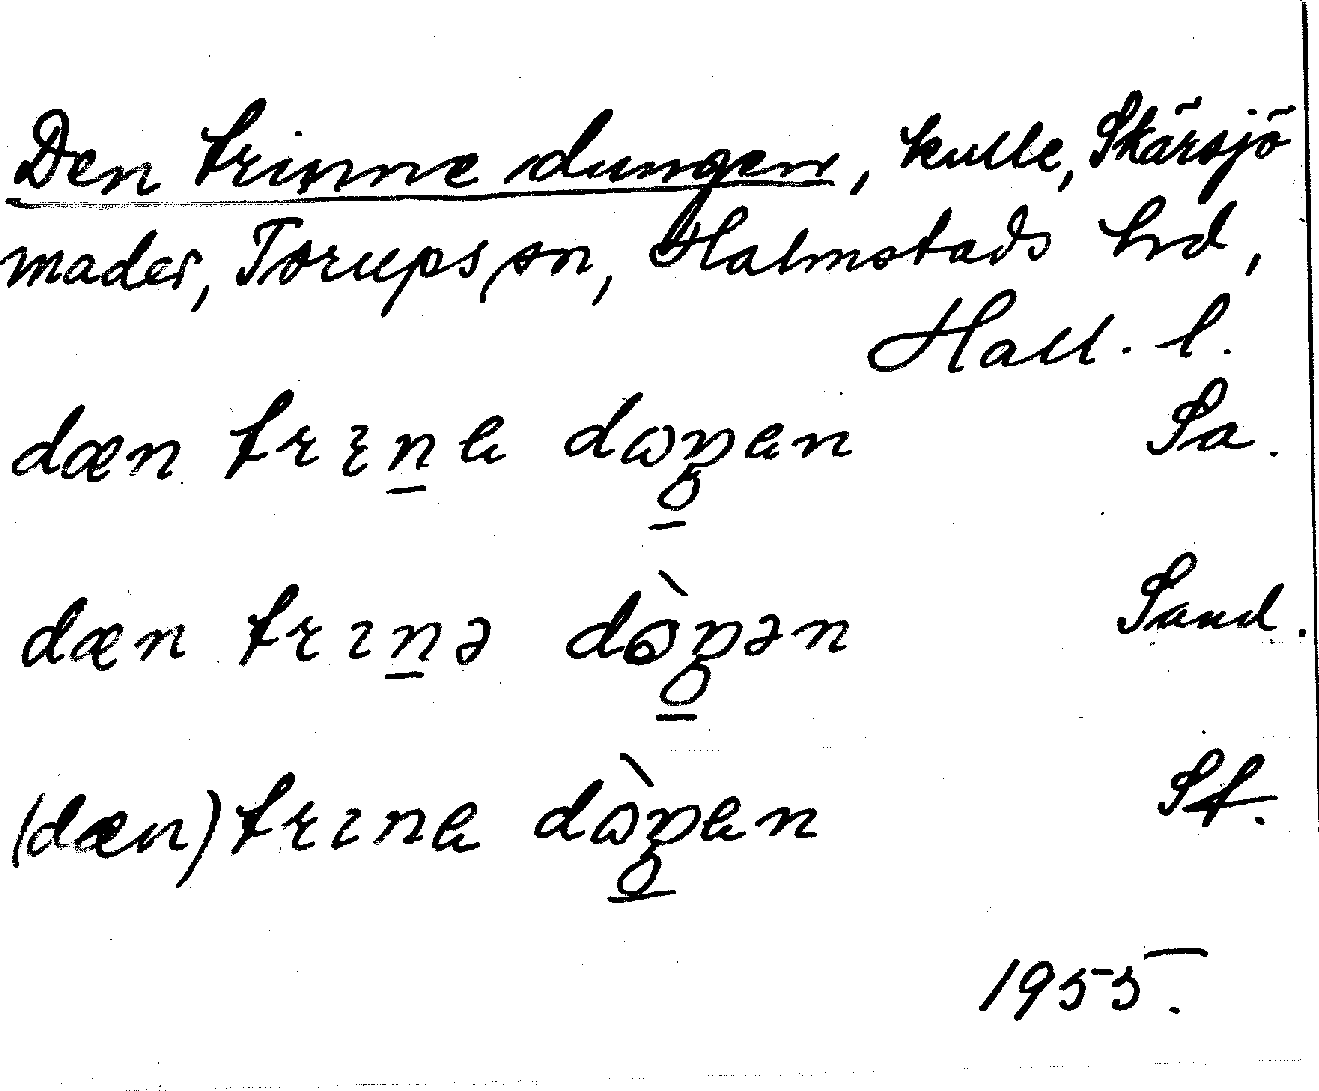 Den trinne dungen, kulle, Skärsjö
mader, Torups sn, Halmstads hrd,
Hall. l.
dæn trɪn̠e dωŋ̠en Sa.
dæn trɪn̠ə dὼŋ̠ən Sand.
(dæn) trɪne dὼŋ̠en St.
1955.